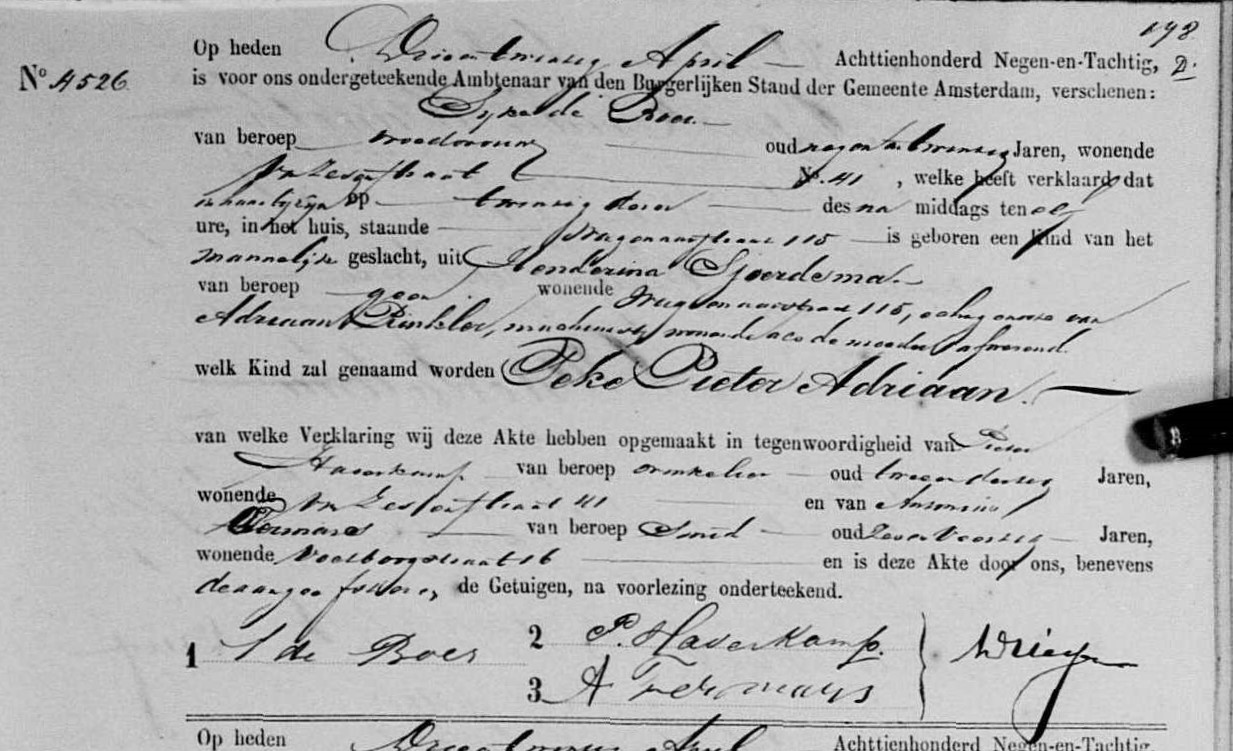 198
D.
Op heden Drieentwintig April Achttienhonderd Negen-en-Tachtig,
No. 4526
is voor ons ondergeteekende Ambtenaar van den Burgerlijken Stand der Gemeente Amsterdam, verschenen:
de Boer
van beroep vroedvrouw oud negen en twintig Jaren, wonende
No. 41, welke heeft verklaard dat
in haar bijzijn op twintig dezer des na middags ten elf
ure, in het huis, staande Wagenaarstraat 115 is geboren een kind van het
mannelijk geslacht, uit Henderina Sjoerdsma
van beroep geen wonende Wagenaarstraat 115, echtgenoote van
Adriaan Rinkler, machinist, wonende als de moeder, afwezend.
welk Kind zal genaamd worden Peke Pieter Adriaan.
van welke Verklaring wij deze Akte hebben opgemaakt in tegenwoordigheid van Pieter
Haverkamp van beroep winkelier oud twee en dertig Jaren,
wonende straat 41 en van Antonius
Termaas van beroep Smid oud Jaren,
wonende straat 16 en is deze Akte door ons, benevens
de aangeefster en de Getuigen, na voorlezing onderteekend.
1 S de Boer
2 P. Haverkamp.
3 A
Op heden Drieentwintig April Achttienhonderd Negen-en-Tachtig